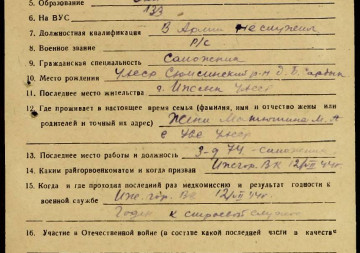 5. Образование
6. На ВУС 133
7. Должностная квалификация В Армии не служил
8. Военное звание р/с
9. Гражданская специальность Сапожник
10. Место рождения УАССР Сюмсинский р-н д. В.
11. Последнее место жительства г. Ижевск УАССР
12. Где проживает в настоящее время семья (фамилия, имя и отчество жены или
родителей и точный их адрес) Жена Матюшина М. А
УАССР
13. Последнее место работы и должность з-д 74 - сапожник
14. Каким райгорвоенкоматом и когда призван Ижгор. ВК 44г.
15. Когда и где проходил последний раз медкомиссию и результат годности к
военной службе Иж. гор. ВК 44г.
Годен к строевой службе
16. Участие в Отечественной войне (в составе какой последней части в качестве